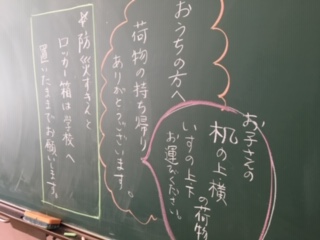 おうちの方へ
荷物の持ち帰り
ありがとうございます。
お子さその
机の上横
いすの上下の荷物
お運びください。
*防災ずきんと
ロッカー箱は学校へ
置いたままでお願いします。